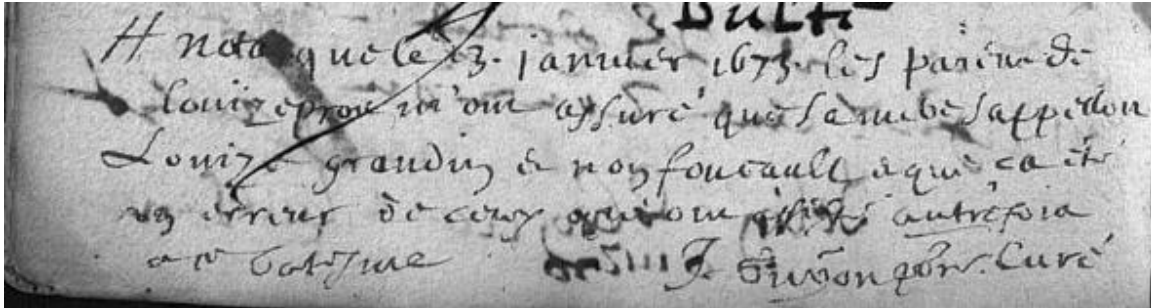 # nota que le 3. janvier 1673. les parens de
Louize prou m'ont assuré que sa mere s'appelloit
Louize grandin & non foucault & que ca été
un erreur de ceux qui ont assisté autrefois
a ce batesme J. Guyon pbre. Curé